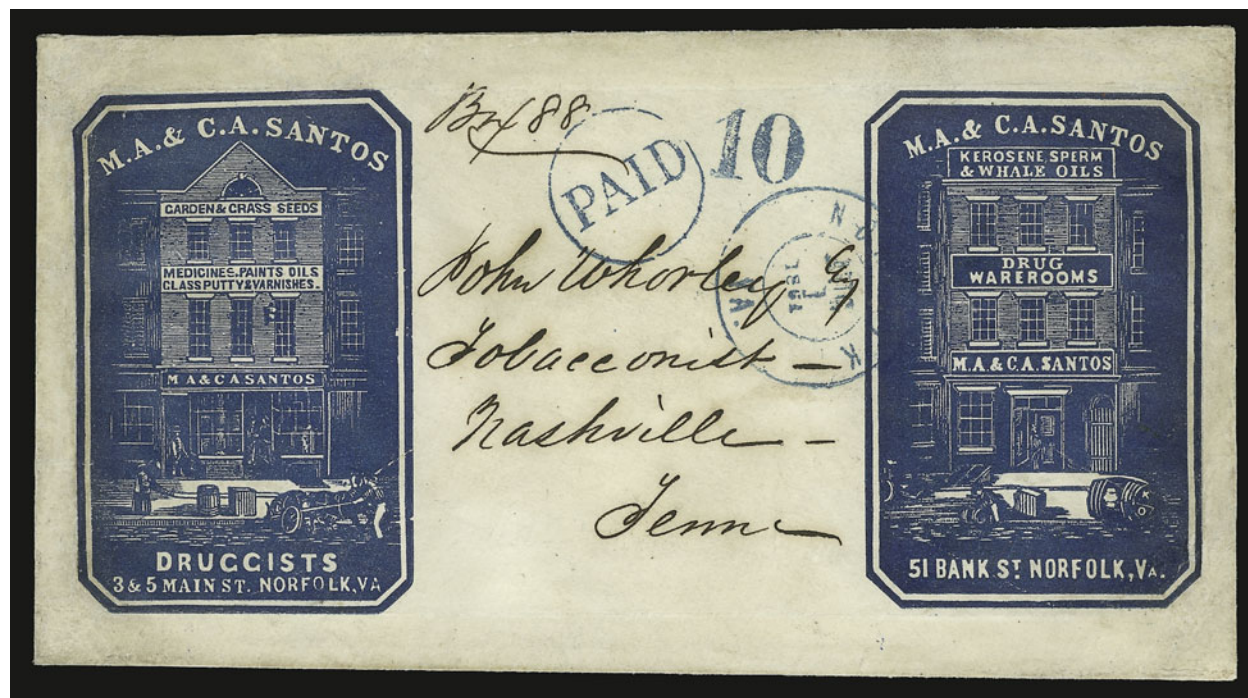 M.A. & C.A. SANTOS
GARDEN & GRASS SEEDS
MEDICINES. PAINTS OILS
GLASS PUTTY & VARNISHES.
M A & C A SANTOS
DRUGGISTS
3 & 5 MAIN ST. NORFOLK, VA
Box 88
PAID
10
NO K VA.
1861
John Whorley
Tobacconist —
Nashville —
Tenn
M.A. & C.A. SANTOS
KEROSENE SPERM
& WHALE OILS
DRUG
WAREROOMS
M.A. & C.A. SANTOS
51 BANK ST NORFOLK, VA.